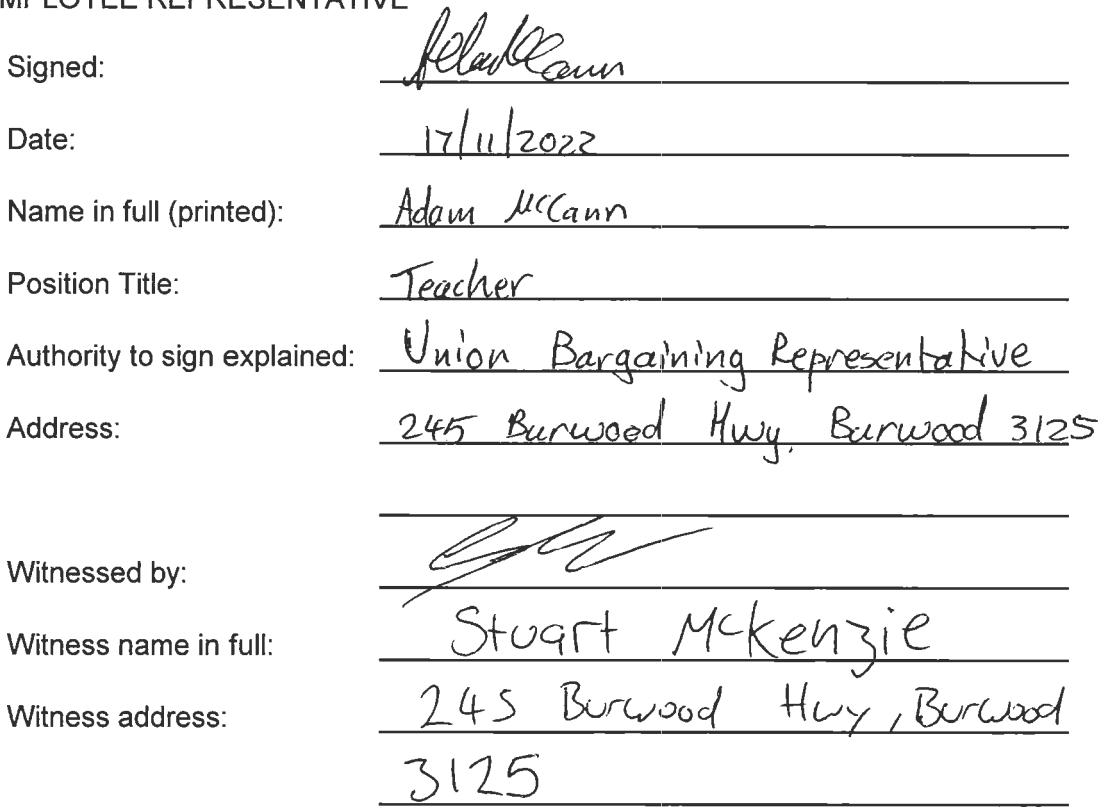 MPLOYEE REPRESENTATIVE
Signed:
Date: 17/11/2022
Name in full (printed): Adam McCann
Position Title: Teacher
Authority to sign explained: Union Bargaining Representative
Address: 245 Burwood Hwy, Burwood 3125
Witnessed by:
Witness name in full: Stuart McKenzie
Witness address: 245 Burwood Hwy, Burwood
3125